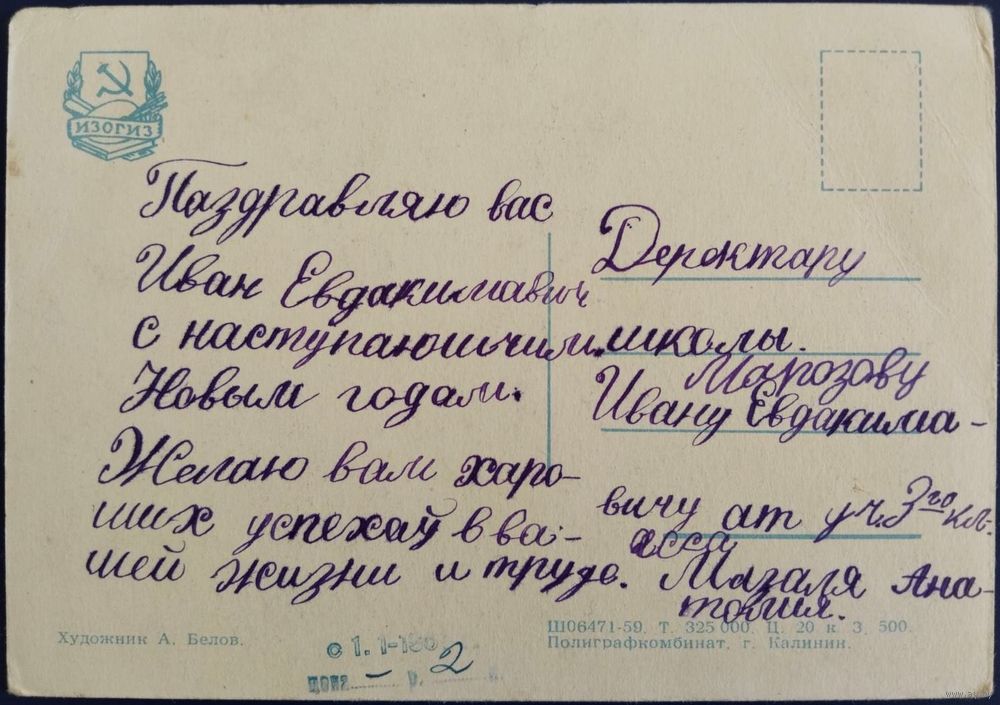 ИЗОГИЗ
Паздравляю вас
Иван Евдакимавич
с наступаюшчим
Новым годам.
Желаю вам харо-
ших успехаў в ва-
шей жизни и труде.
Деректару
школы.
Марозову
Ивану Евдакима-
вичу ат уч. 3го кл-
асса
Мазаля Ана-
толия.
Художник А. Белов.
Ш06471-59. Т. 325 000. Ц. 20 к. З. 500.
Полиграфкомбинат, г. Калинин.
с 1. 1-196
цена — р. 2 к.